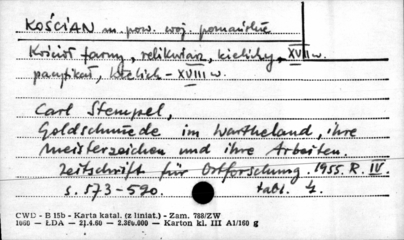 KOŚCIAN m. pow. woj. poznańskie
Kościół farny, relikwiarz, kielichy, XVII w.
pacyfikał, kielich - XVIII w.
Carl Stempel,
Goldschmiede im Wartheland, ihre
Meisterzeichen und ihre Arbeiten.
Zeitschrift für Ostforschung. 1955. R. IV.
s. 573-590. tabl. 4.
CWD - B 15b - Karta katal. (z liniat.) - Zam. 788/ZW
1060 - ŁDA - 21.4.60 - 2.380.000 - Karton kl. III A1/160 g